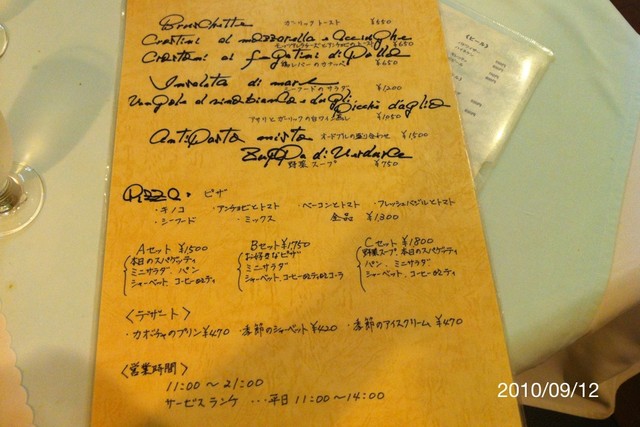 Bruschetta ガーリックトースト ¥650
Crostini al mozzarella e Acciughe
モッツァレラチーズとアンチョビのトースト ¥650
Crostini ai fegatini di Pollo
鶏レバーのカナッペ ¥650
Insalata di mare
シーフードのサラダ ¥1200
Vongole al vino bianco e dagli Picchi d'aglio
アサリとガーリックの白ワイン蒸し ¥1050
Antipasto misto オードブルの盛り合わせ ¥1500
Zuppa di Verdure
野菜スープ ¥750
PIZZA・ピザ
・キノコ ・アンチョビとトマト ・ベーコンとトマト ・フレッシュバジルとトマト
・シーフード ・ミックス 全品 ¥1300
Aセット ¥1500
本日のスパゲッティ
ミニサラダ、パン
シャーベット、コーヒーorティ
Bセット ¥1750
お好きなピザ
ミニサラダ
シャーベット、コーヒーorティorコーラ
Cセット ¥1800
野菜スープ、本日のスパゲッティ
パン、ミニサラダ
シャーベット、コーヒーorティ
〈デザート〉
・カボチャのプリン¥470 ・季節のシャーベット¥420 ・季節のアイスクリーム¥470
〈営業時間〉
11:00〜21:00
サービスランチ ・・・平日 11:00〜14:00
〈ビール〉
2010/09/12